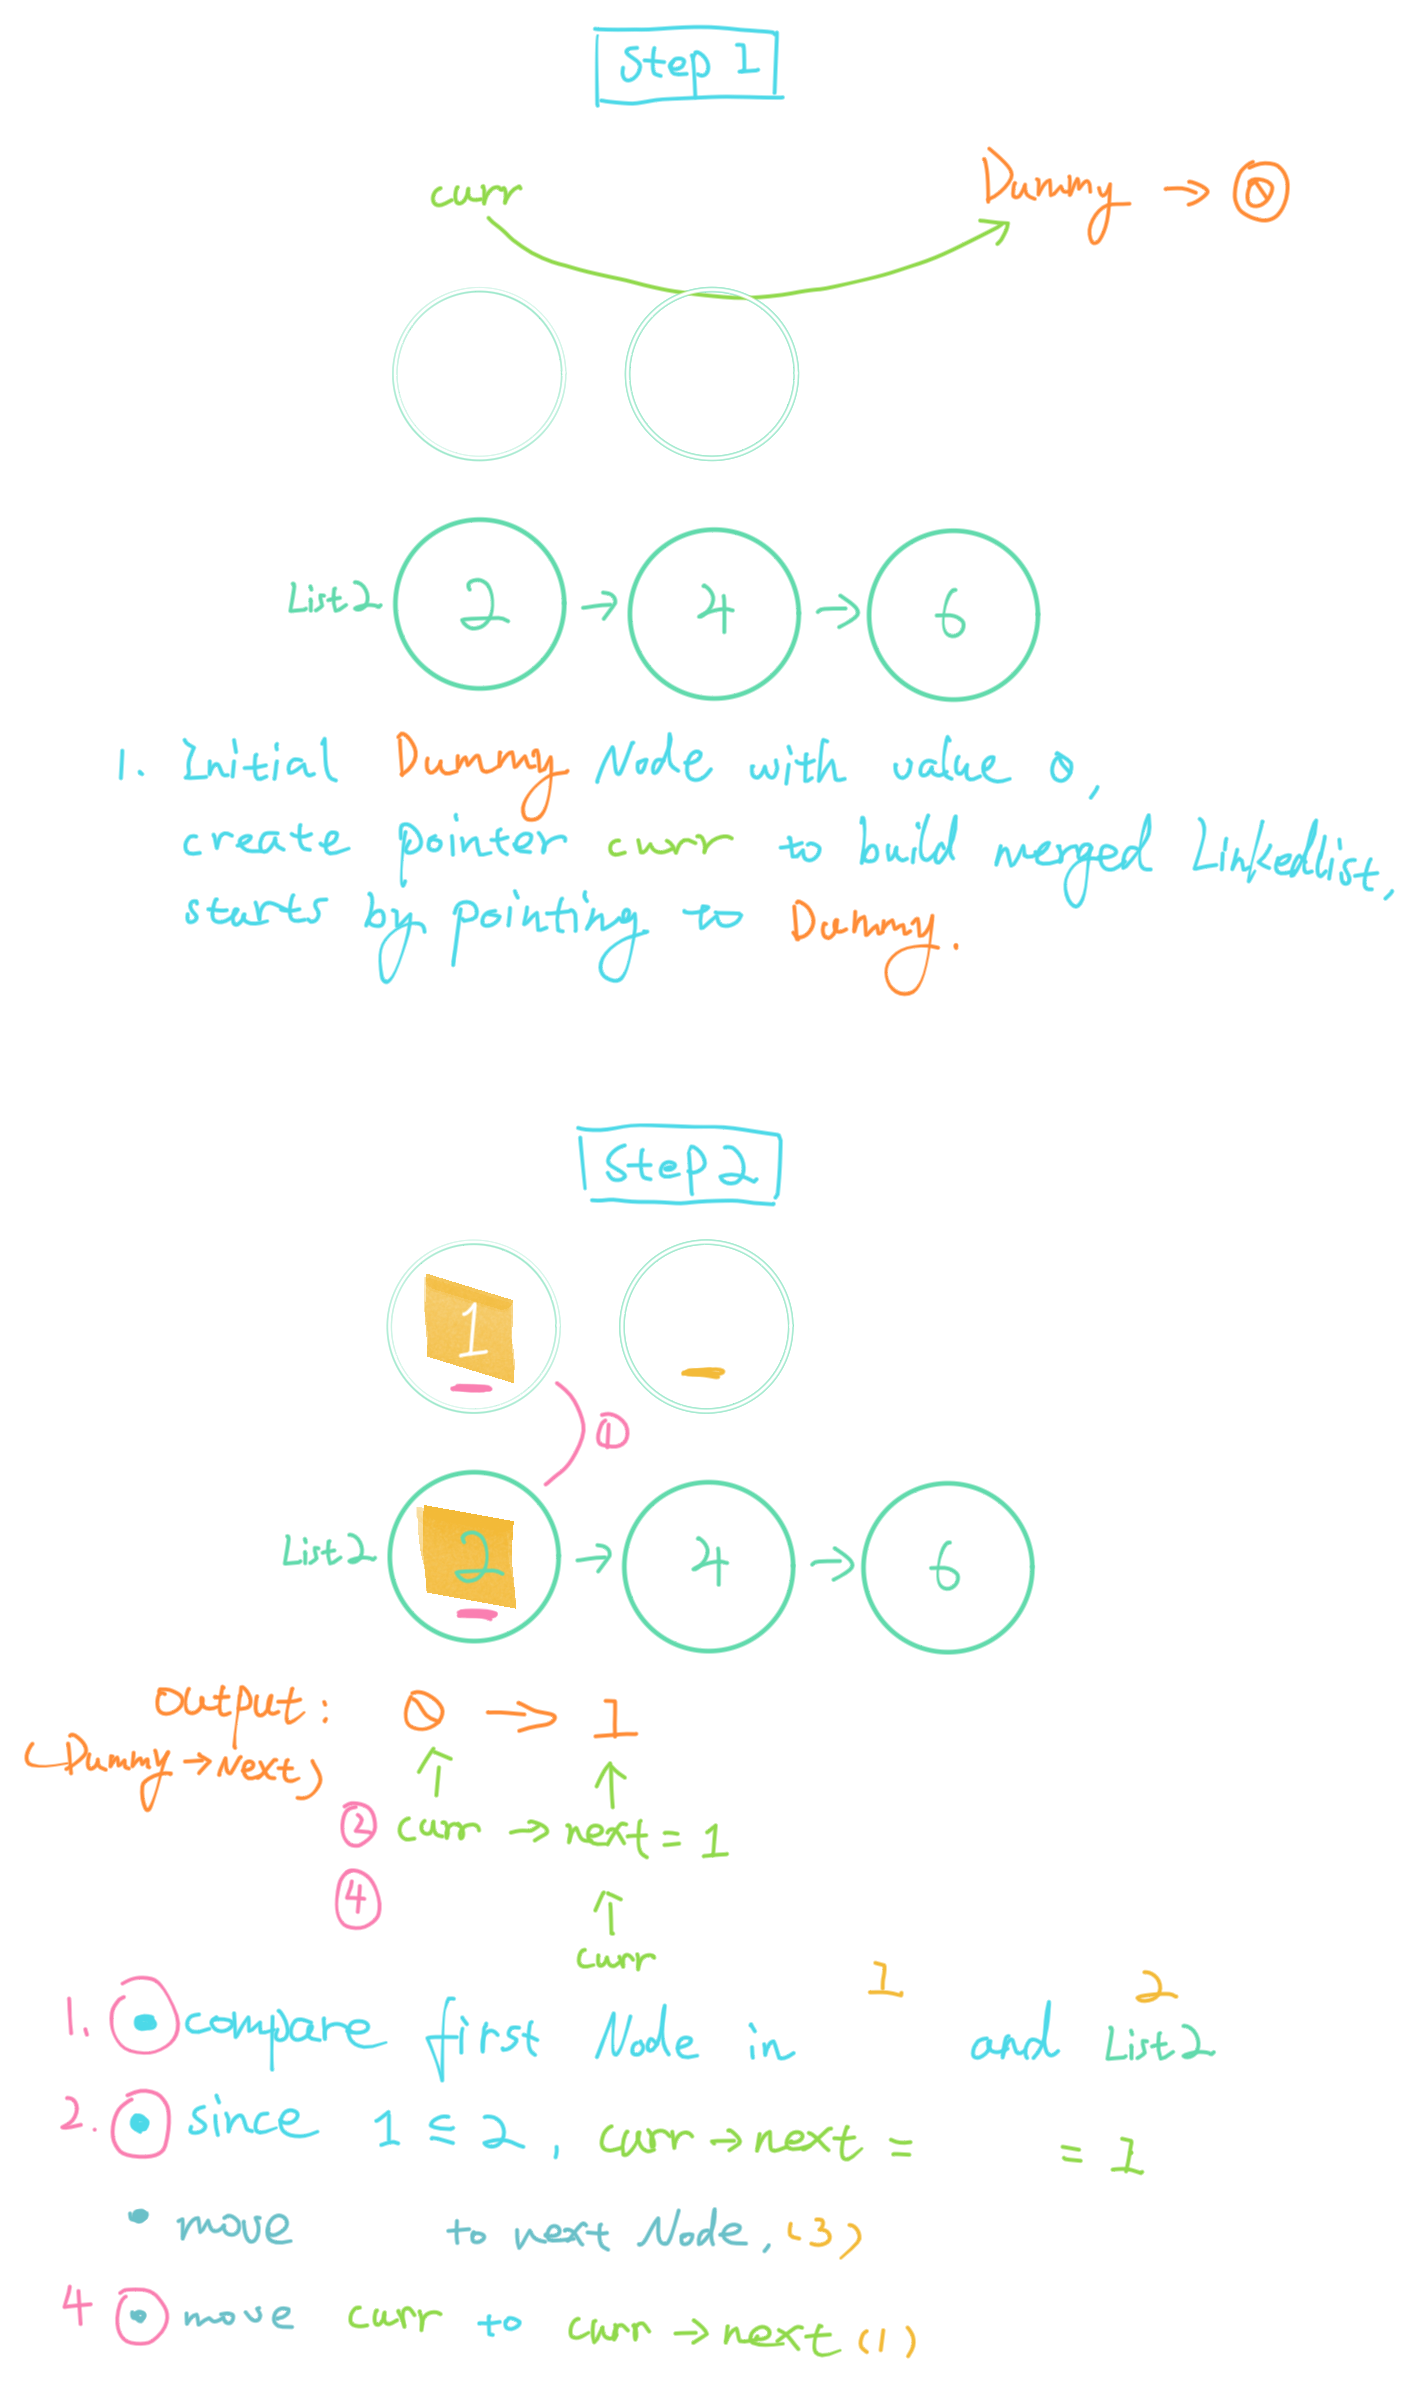 Step 1
curr Dummy → 0
List2 2 → 4 → 6
1. Initial Dummy Node with value 0,
create pointer curr to build merged Linkedlist,
starts by pointing to Dummy.
Step 2
1
①
List2 2 → 4 → 6
output: 0 → 1
(Dummy → Next)
② curr → next = 1
④
curr
1 2
1. • compare first Node in and List2
2. • since 1 ≤ 2, curr → next = = 1
• move to next Node, (3)
4 • move curr to curr → next (1)